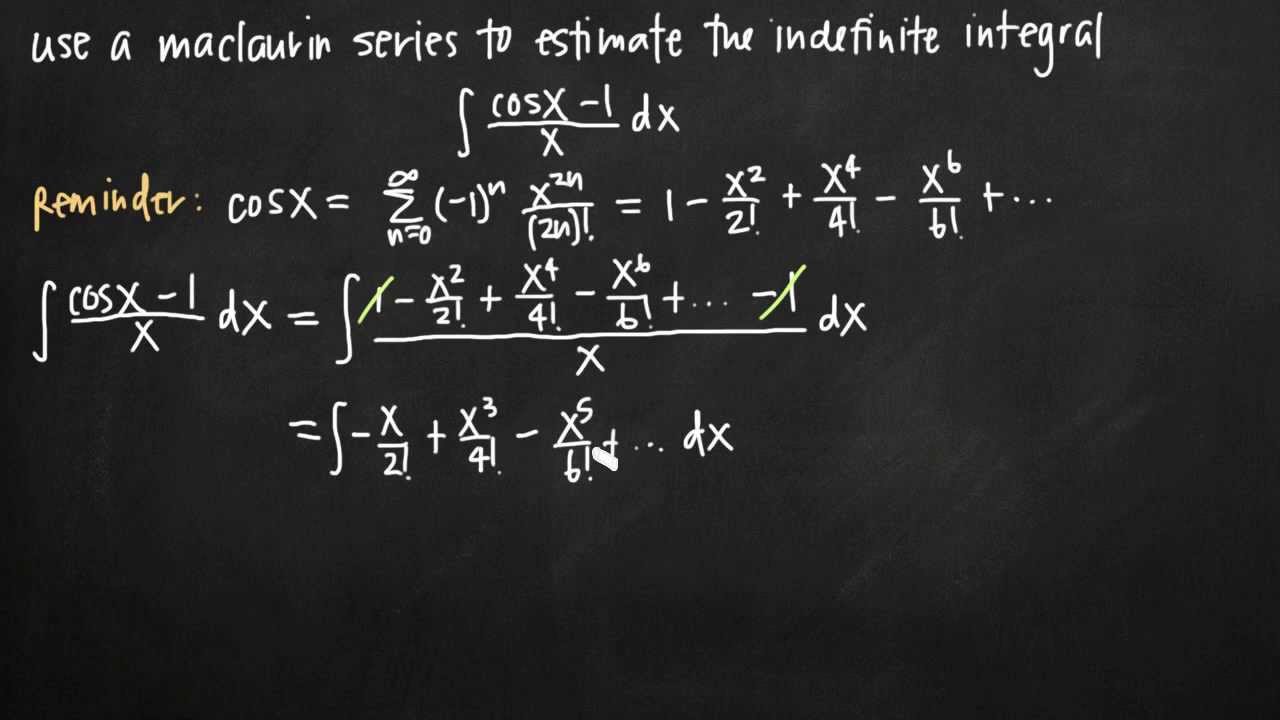 use a maclaurin series to estimate the indefinite integral
∫ (cosx - 1)/x dx
Reminder: cosx = ∑_{n=0}^{∞} (-1)^n x^{2n}/(2n)! = 1 - x^2/2! + x^4/4! - x^6/6! + ...
∫ (cosx - 1)/x dx = ∫ (1 - x^2/2! + x^4/4! - x^6/6! + ... - 1)/x dx
= ∫ -x/2! + x^3/4! - x^5/6! + ... dx